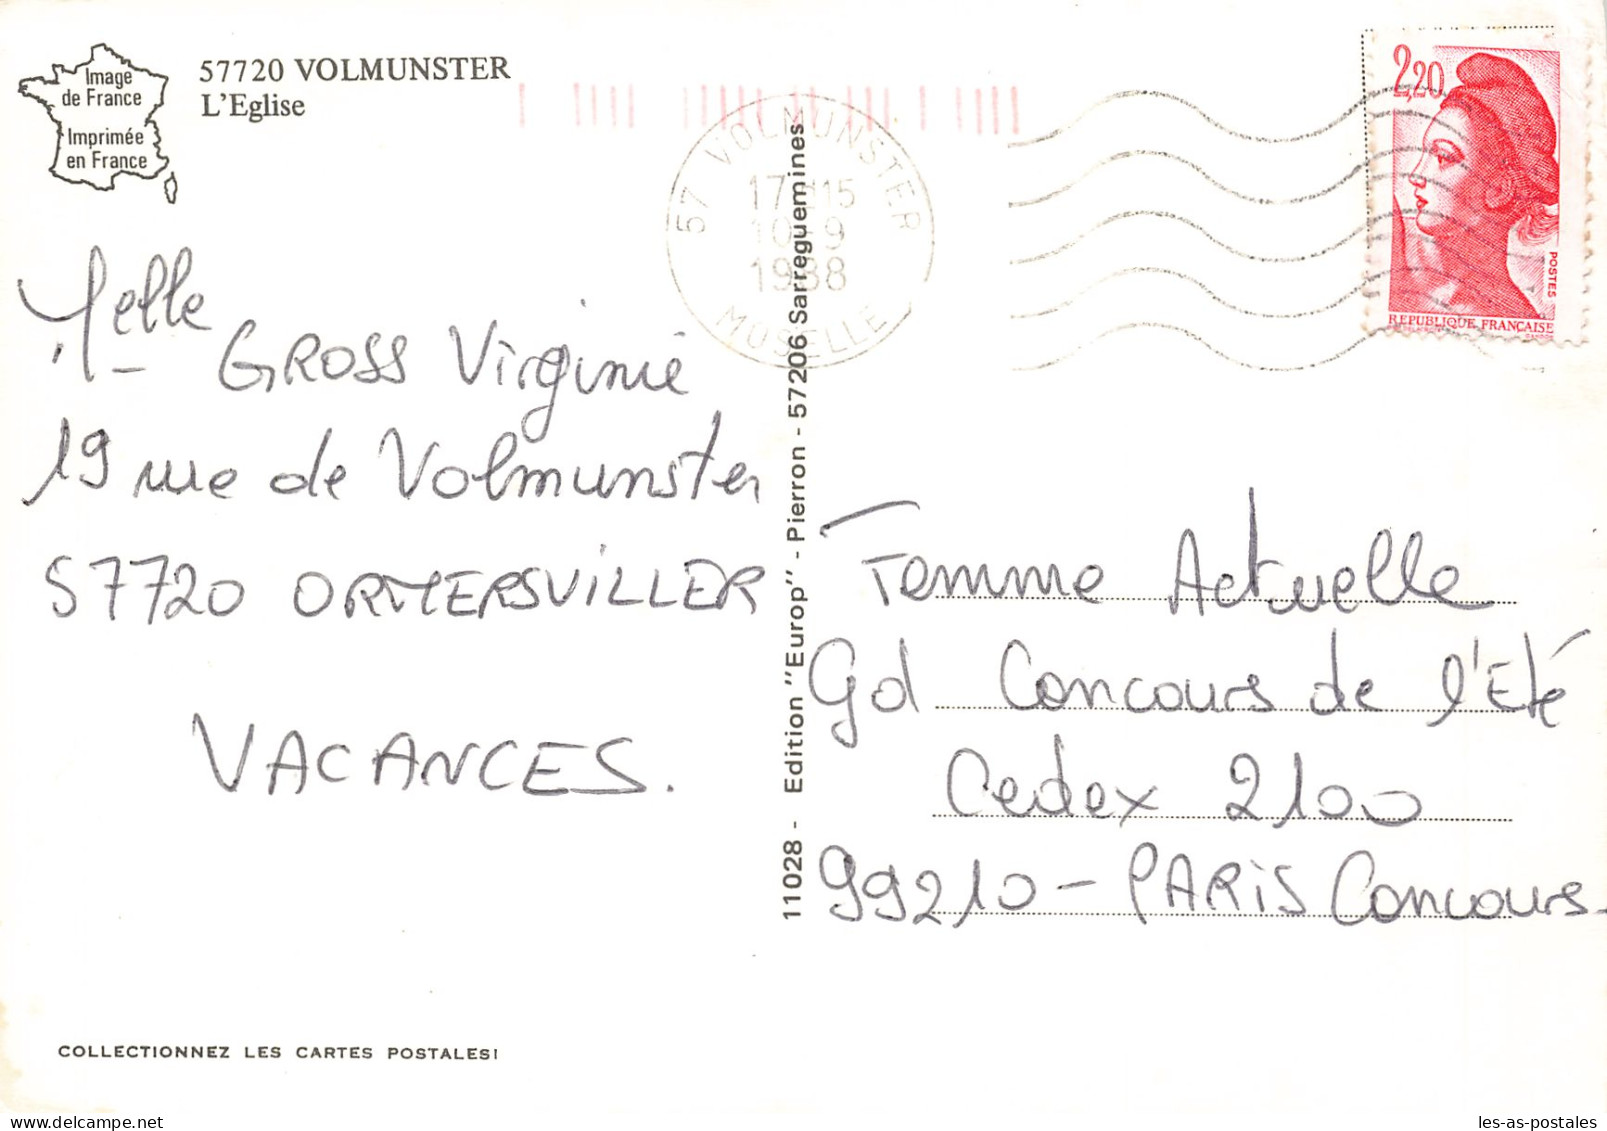 Image
de France
Imprimée
en France
57720 VOLMUNSTER
L'Eglise
57 VOLMUNSTER
17 H15
10-9
1988
MOSELLE
2,20
POSTES
REPUBLIQUE FRANÇAISE
Melle
GROSS Virginie
19 rue de Volmunster
57720 ORMERSVILLER
VACANCES.
11028 - Edition "Europ" - Pierron - 57206 Sarreguemines
Femme Actuelle
Gd Concours de l'Eté
Cedex 2100
99210 - PARIS Concours.
COLLECTIONNEZ LES CARTES POSTALES!
les-as-postales